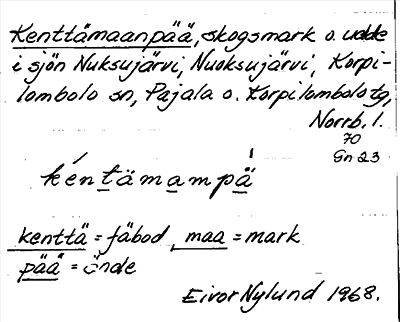 Kenttämaanpää, skogsmark o. udde
i sjön Nuksujärvi, Nuoksujärvi, Korpi-
lombolo sn, Pajala o. Korpilombolo tg,
Norrb. l.
70
Gn 23
kéntämampä
kenttä = fäbod, maa = mark
pää = ände
Eivor Nylund 1968.